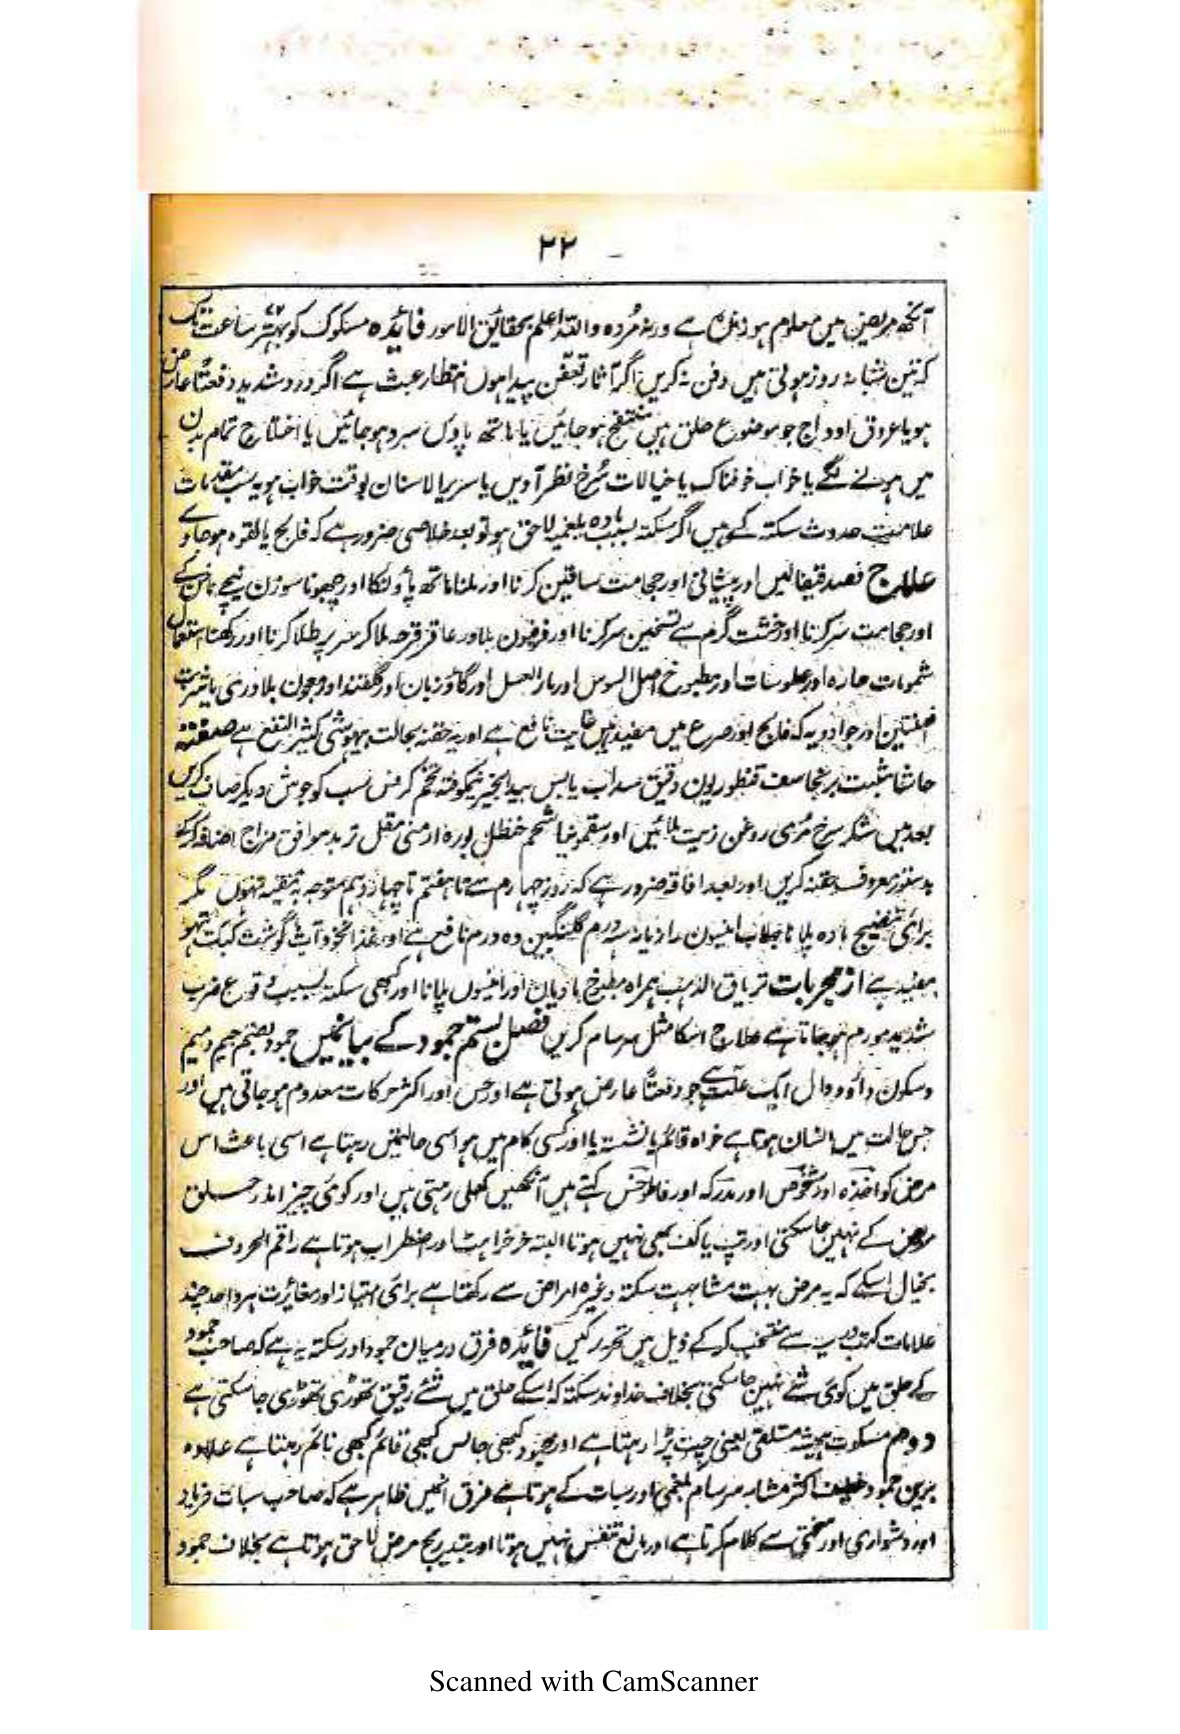 ۲۲
آنکھ مریض میں معلوم ہو زندہ ہے ورنہ مُردہ واللہ اعلم بحقائق الامور فائدہ مسکوت کو بہتر ساعت تک
کہ تین شبانہ روز ہوتی ہیں دفن نہ کریں اگر آثار تعفن پیدا ہوں انتظار عبث ہے اگر درد شدید دفعتًا عارض
ہو یا عروق اوداج جو موضوع حلق ہیں منتفخ ہوجائیں یا ہاتھ پاوں سرد ہوجائیں یا اختلاج تمام بدن
میں ہونے لگے یا خواب خوفناک یا خیالات سُرخ نظر آویں یا سریرالاسنان بوقت خواب ہو یہ سب مقدمات
علامت حدوث سکتہ کے ہیں اگر سکتہ بسبب مادہ بلغمیہ لاحق ہو تو بعد خلاصی ضرور ہے کہ فالج یا لقوہ ہوجاوے
علاج فصد قیفالیں اور پیشانی اور حجامت ساقین کرنا اور ملنا ہاتھ پاؤں کا اور چھونا سوزن نیچے ناخن کے
اور حجامت سر کرنا اور خشت گرم سے تسخین سر کرنا اور فرفیون بلادر عاقر قرحہ ملا کر سر پر طلا کرنا اور رکھنا استعمال
شمومات حارہ اور عطوسات اور مطبوخ اصل السوس اور ماء العسل اور گاؤ زبان اور گلقند اور معجون بلادری یا شربت
افسنتین اور جو ادویہ کہ فالج اور صرع میں مفید ہیں غایت نافع ہے اور یہ حقنہ بحالت بیہوشی کثیر النفع ہے صفتہ
حاشا شبت برنجاسف قنطوریون دقیق سداب یابس بیدانجیر نیمکوفتہ تخم کرفس سب کو جوش دیکر صاف کریں
بعد میں شکر سرخ مُری روغن زیت ملائیں اور سقمونیا شحم حنظل بورہ ارمنی مقل تربد موافق مزاج اضافہ کر کے
بدستور معروف حقنہ کریں اور بعد افاقہ ضرور ہے کہ روز چہارم سے تا ہفتم تا چہاردہم متوجہ بہ تنقیہ نہوں مگر
برائی تنضیج مادہ پلانا جلاب انیسون رادیانہ سہ درم گلنگبین دہ درم نافع ہے اور غذا نخود آب گوشت کبک تیہو
مفید ہے از مجربات تریاق الذہب ہمراہ مطبوخ بادیان اور انیسوں پلانا اور کبھی سکتہ بسبب وقوع ضرب
شدید مورم ہوجاتا ہے علاج اسکا مثل سرسام کریں فصل بستم جمود کے بیانمیں جمود بضم جیم و میم
و سکون واؤ و دال ایک علت ہے جو دفعتًا عارض ہوتی ہے اور حس اور اکثر حرکات معدوم ہوجاتی ہیں اور
جس حالت میں انسان ہوتا ہے خواہ قائم یا نشستہ یا اور کسی کام میں ہو اسی حالتمیں رہتا ہے اسی باعث اس
مرض کو اخذہ اور شخوص اور مدرکہ اور قاطوخس کہتے ہیں آنکھیں کھلی رہتی ہیں اور کوئی چیز اندر حلق
مریض کے نہیں جاسکتی اور تپ یا کف بھی نہیں ہوتا البتہ خرخراہٹ اور اضطراب ہوتا ہے راقم الحروف
بخیال اسکے کہ یہ مرض بہت مشابہت سکتہ وغیرہ امراض سے رکھتا ہے برائی امتیاز اور مغائرت ہر واحد چند
علامات کتب سے منتخب کر کے ذیل میں تحریر کیں فائدہ فرق درمیان جمود اور سکتہ یہ ہے کہ صاحب جمود
کے حلق میں کوئی شے نہیں جاسکتی بخلاف خداوند سکتہ کہ اسکے حلق میں شئے رقیق تھوڑی تھوڑی جاسکتی ہے
دوم مسکوت ہمیشہ مستلقی یعنی چت پڑا رہتا ہے اور مجمود کبھی جالس کبھی قائم کبھی نائم رہتا ہے علاوہ
بریں جمود خفیف اکثر مشابہ سرسام بلغمی اور سبات کے ہوتا ہے فرق انمیں ظاہر ہے کہ صاحب سبات فریاد
اور دشواری اور سختی سے کلام کرتا ہے اور مانع تنفس نہیں ہوتا اور بتدریج مرض لاحق ہوتا ہے بخلاف جمود
Scanned with CamScanner